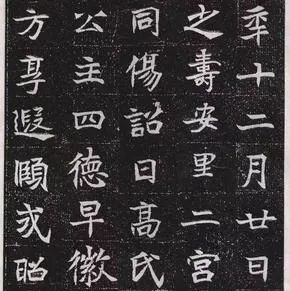 年十二月廿日
之壽安里二宮
同傷詔曰高氏
公主四德早徽
方享遐頤或昭